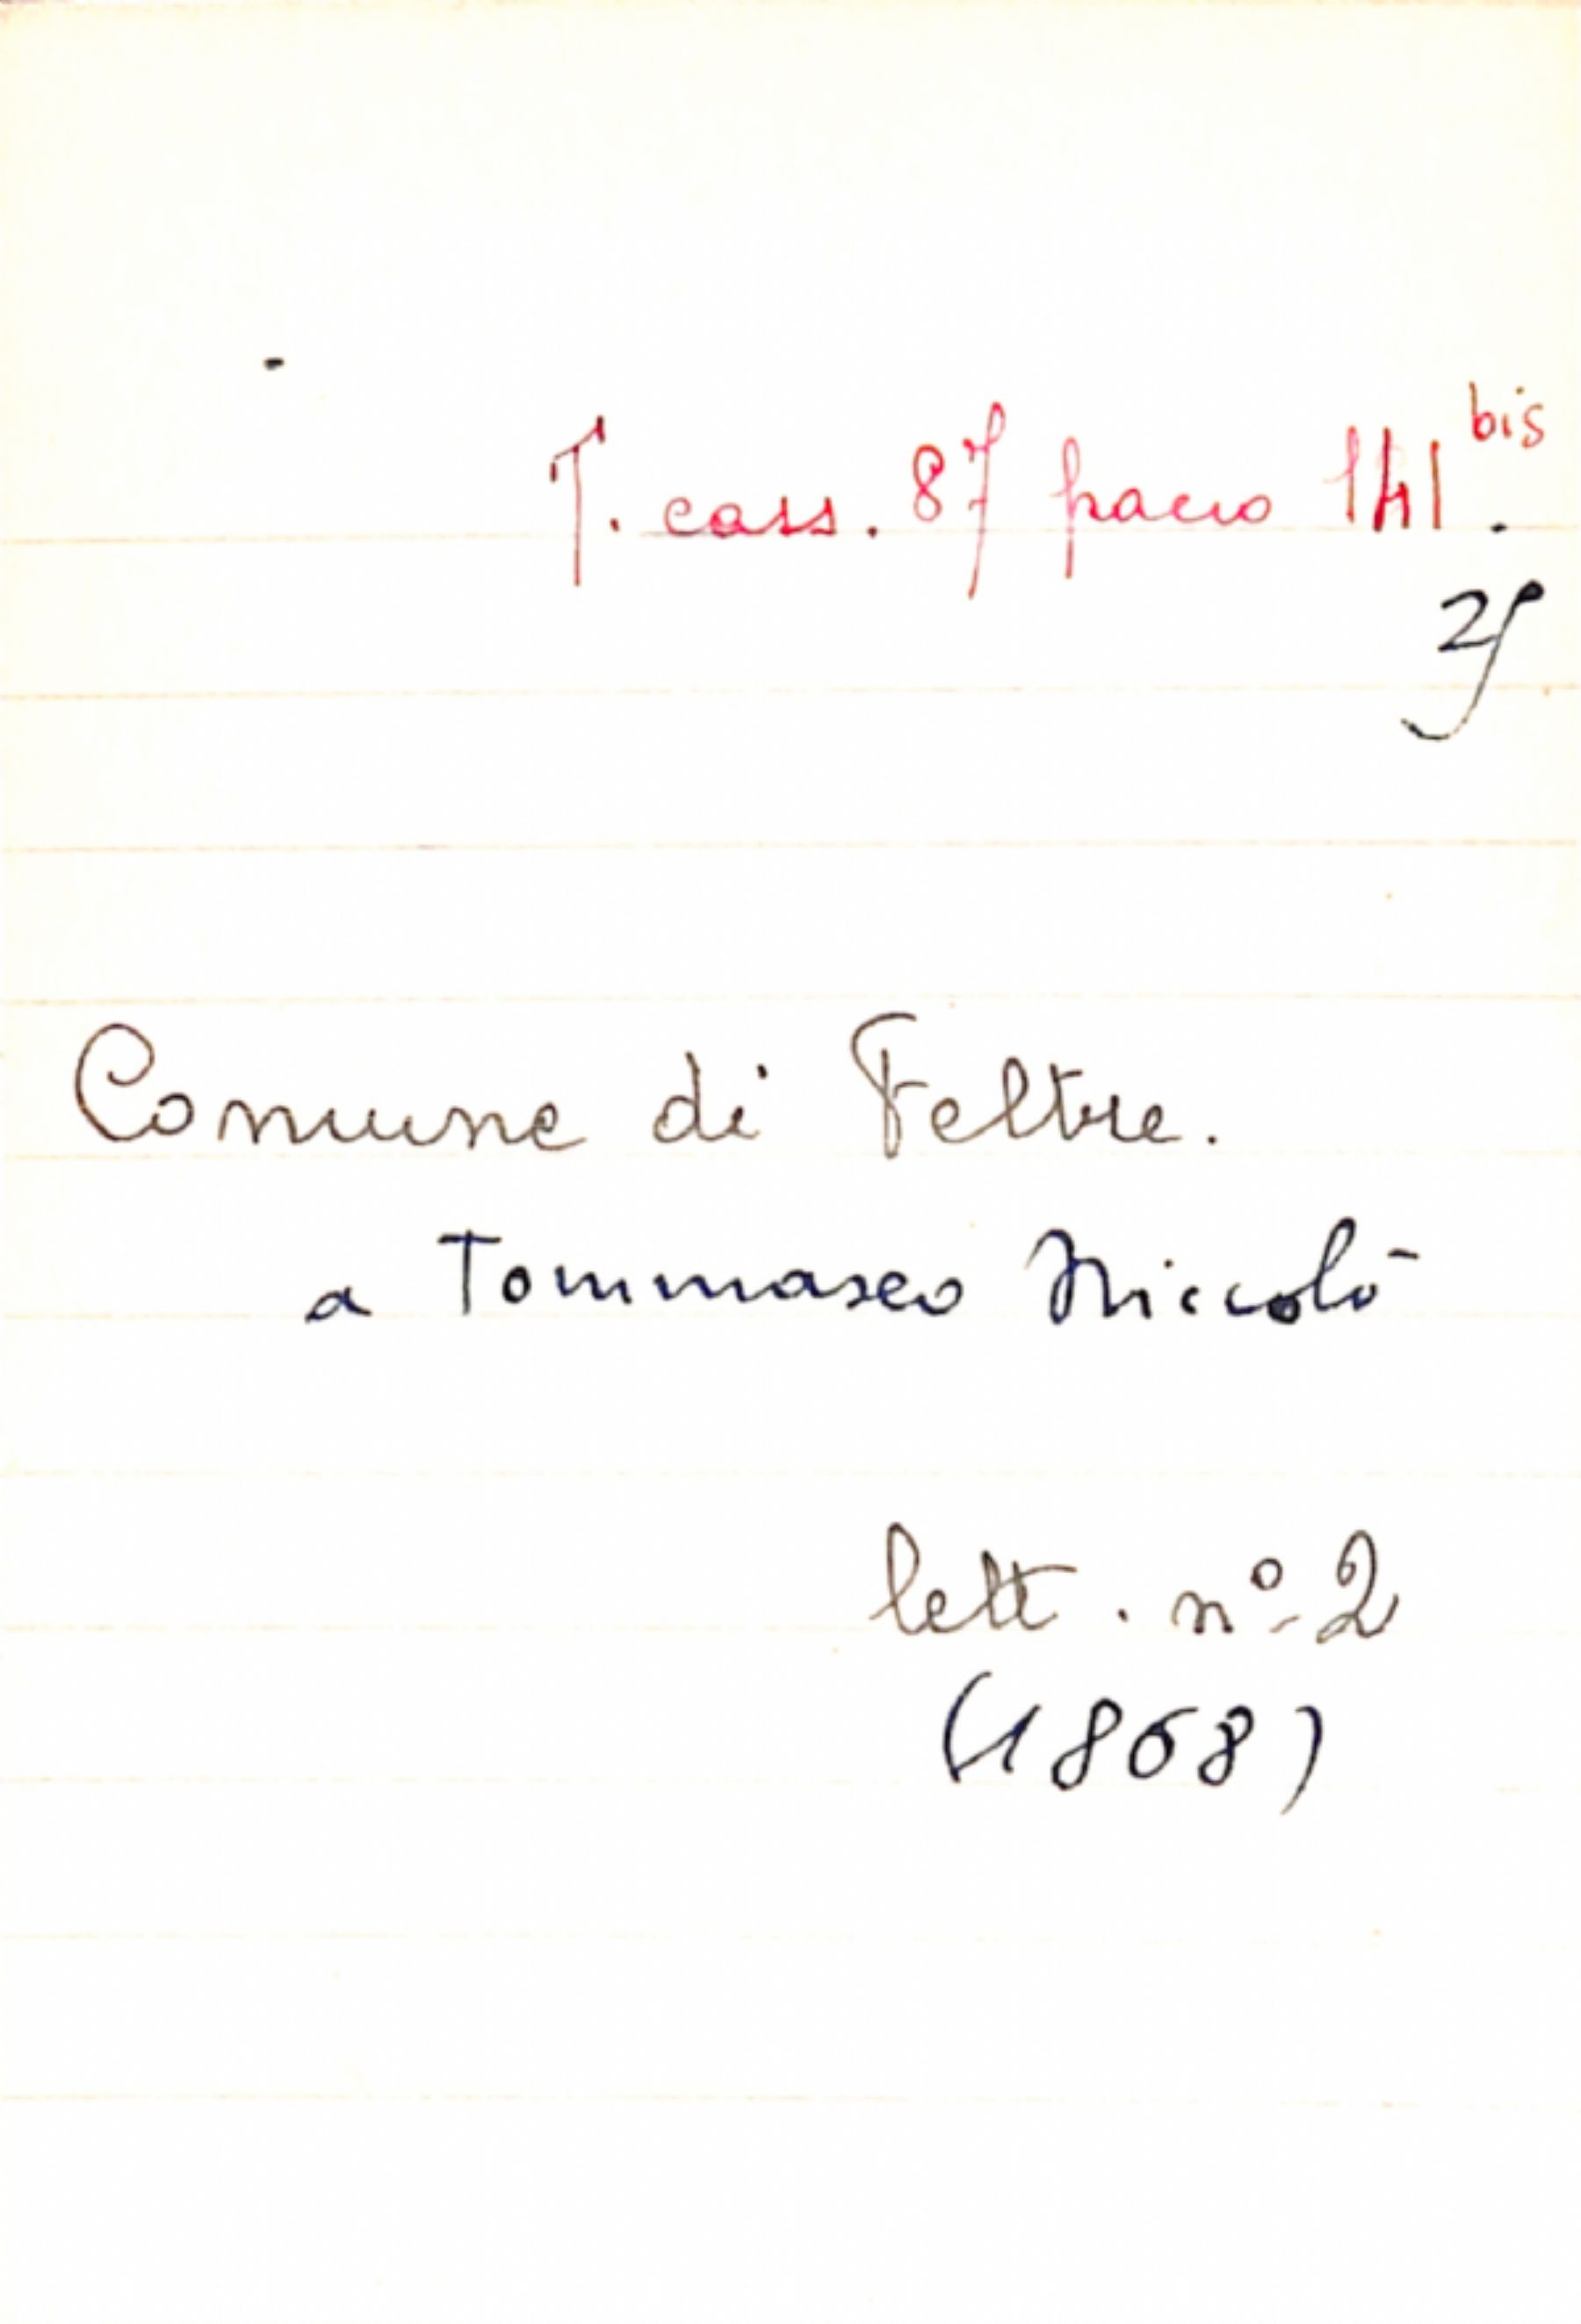 T. cass. 87 pacco 141 bis.
Comune di Feltre.
a Tommaseo Niccolò
lett. nº 2
(1868)